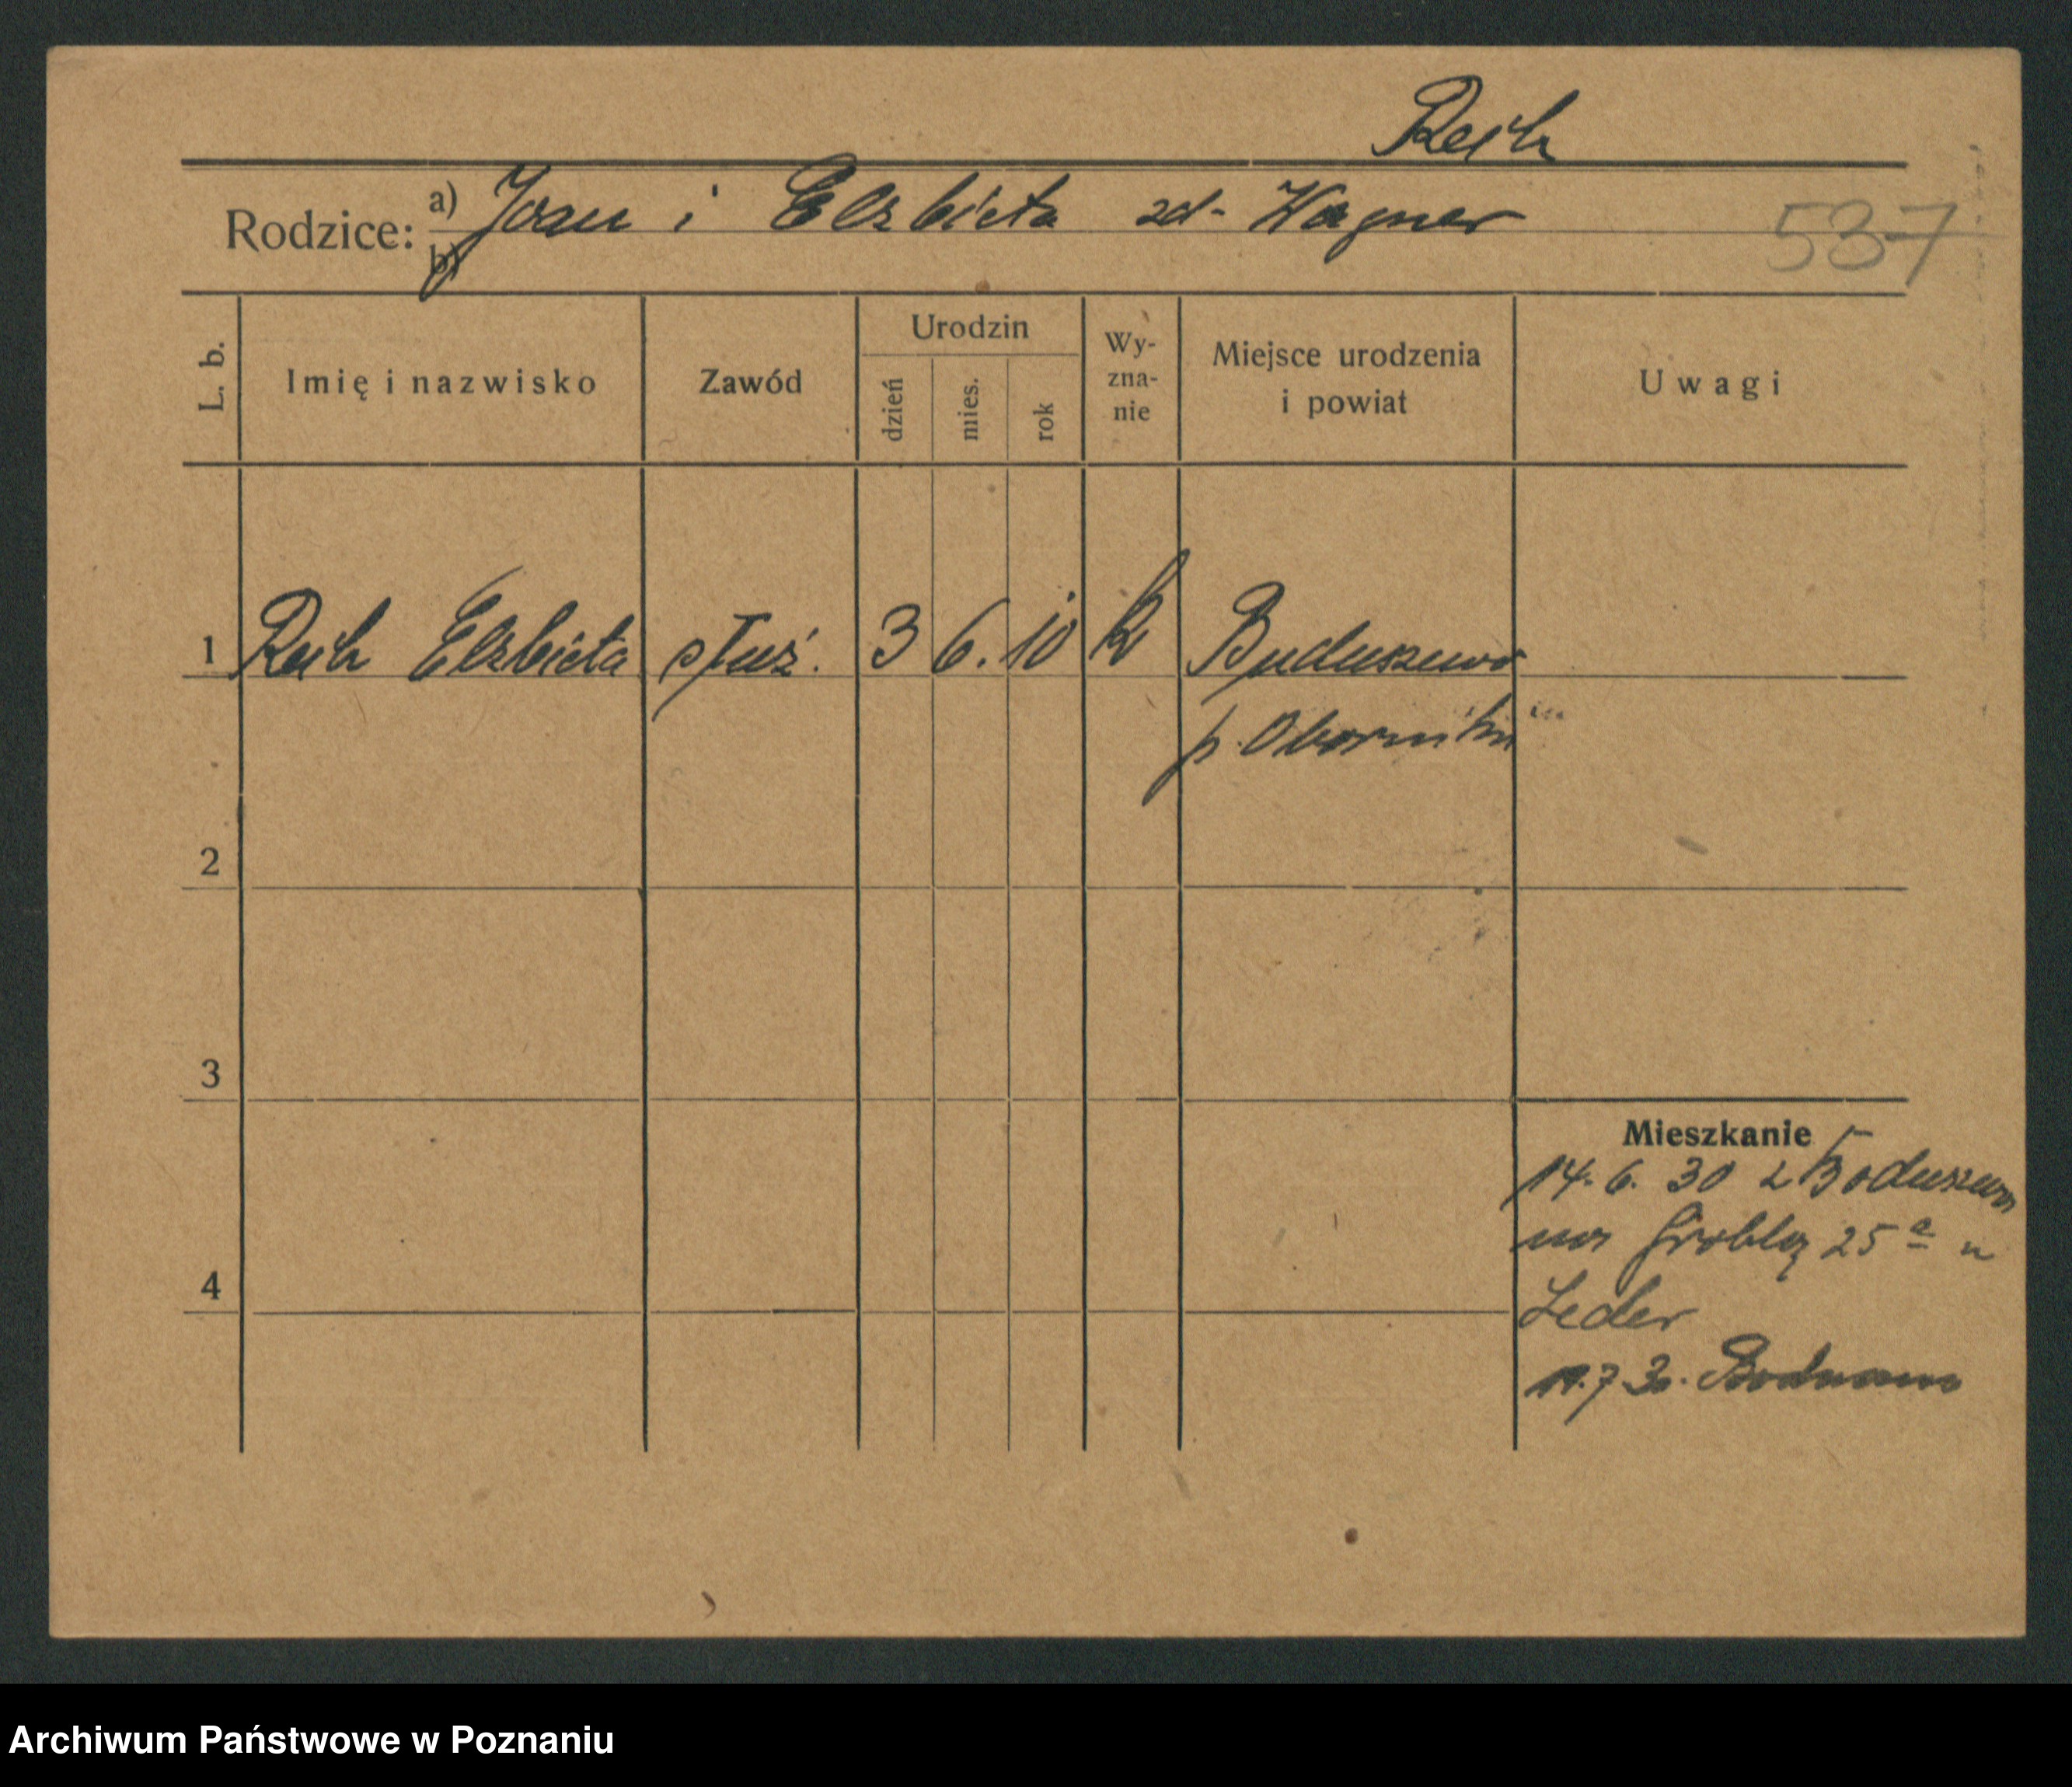 Reich
Rodzice: a) Jan i Elżbieta zd. Wagner
b)
537
L. b. Imię i nazwisko Zawód Urodzin dzień mies. rok Wy-zna-nie Miejsce urodzenia i powiat Uwagi
1 Reich Elżbieta służ. 3 6. 10 k Buduszewo
p. Oborniki
2
3
Mieszkanie
14. 6. 30 z Boduszewa
na Groblą 25 a u
4
Leder
7. 30.
Archiwum Państwowe w Poznaniu